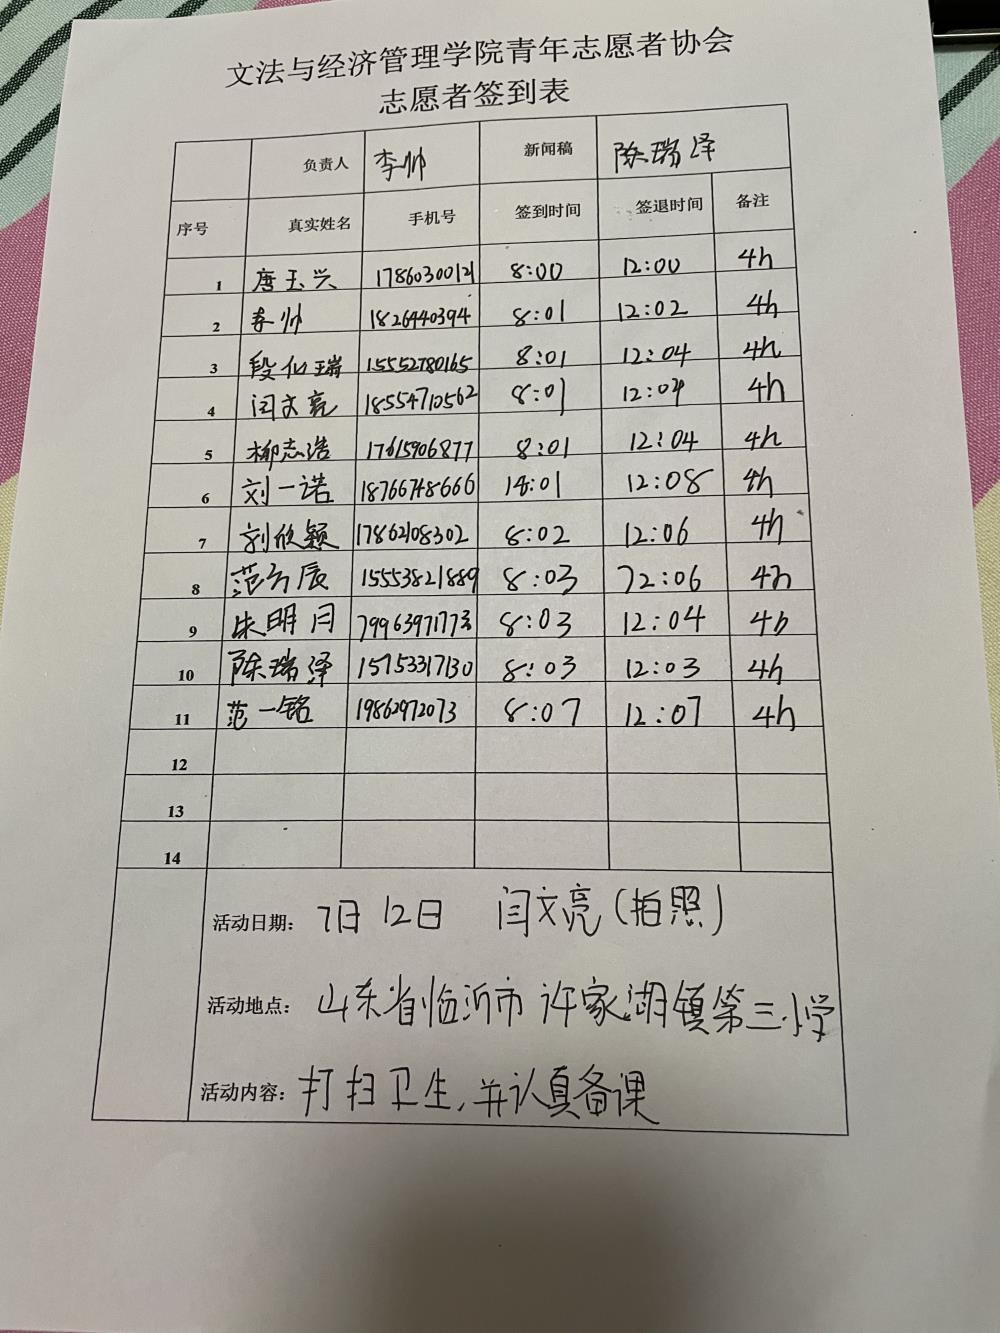 文法与经济管理学院青年志愿者协会
志愿者签到表
负责人 李帅 新闻稿 陈瑞泽
序号 真实姓名 手机号 签到时间 签退时间 备注
1 唐玉兴 17860300121 8:00 12:00 4h
2 李帅 1826440394 8:01 12:02 4h
3 段仙瑞 15552780165 8:01 12:04 4h
4 闫文亮 18554710562 8:01 12:04 4h
5 柳志浩 17615906877 8:01 12:04 4h
6 刘一诺 18766748666 14:01 12:08 4h
7 刘欣颖 17862108302 8:02 12:06 4h
8 范辰 15553821889 8:03 72:06 4h
9 朱明月 8:03 12:04 4h
10 陈瑞泽 15753317130 8:03 12:03 4h
11 范一铭 19862972073 8:07 12:07 4h
12
13
14
活动日期: 7日12日 闫文亮(拍照)
活动地点: 山东省临沂市许家湖镇第三小学
活动内容: 打扫卫生,并认真备课